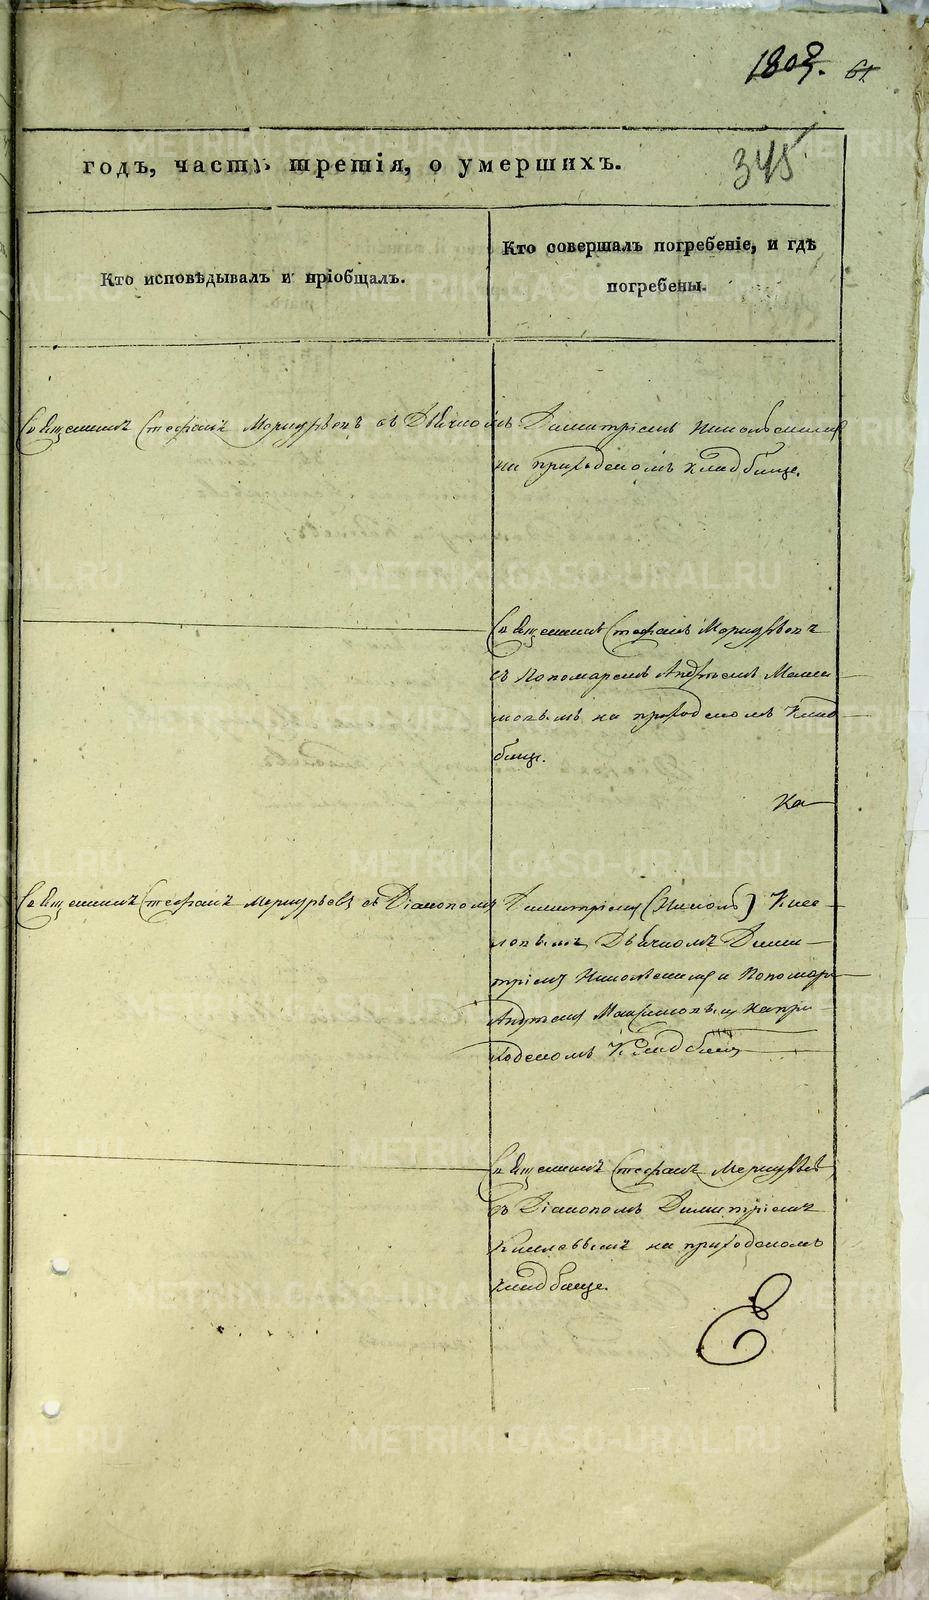 1809. 61
годъ, часть третія, о умершихъ. 345
Кто исповѣдывалъ и пріобщалъ.
Кто совершалъ погребеніе, и гдѣ
погребены.
Священникъ Стефанъ Меркурьевъ съ Дьячкомъ Димитріемъ
на приходскомъ кладбище.
Священникъ Стефанъ Меркурьевъ
съ Пономаремъ Андреемъ Макси-
мовымъ на приходскомъ клад-
бище.
Священникъ Стефанъ Меркурьевъ съ Діакономъ Димитріемъ Кисе-
ловымъ Дьячкомъ Дими-
тріемъ и Пономаремъ
Андреемъ Максимовымъ на при
ходскомъ кладбище
Священникъ Стефанъ Меркурьевъ
съ Діакономъ Димитріемъ
Киселевымъ на приходскомъ
кладбище.
METRIKI.GASO-URAL.RU